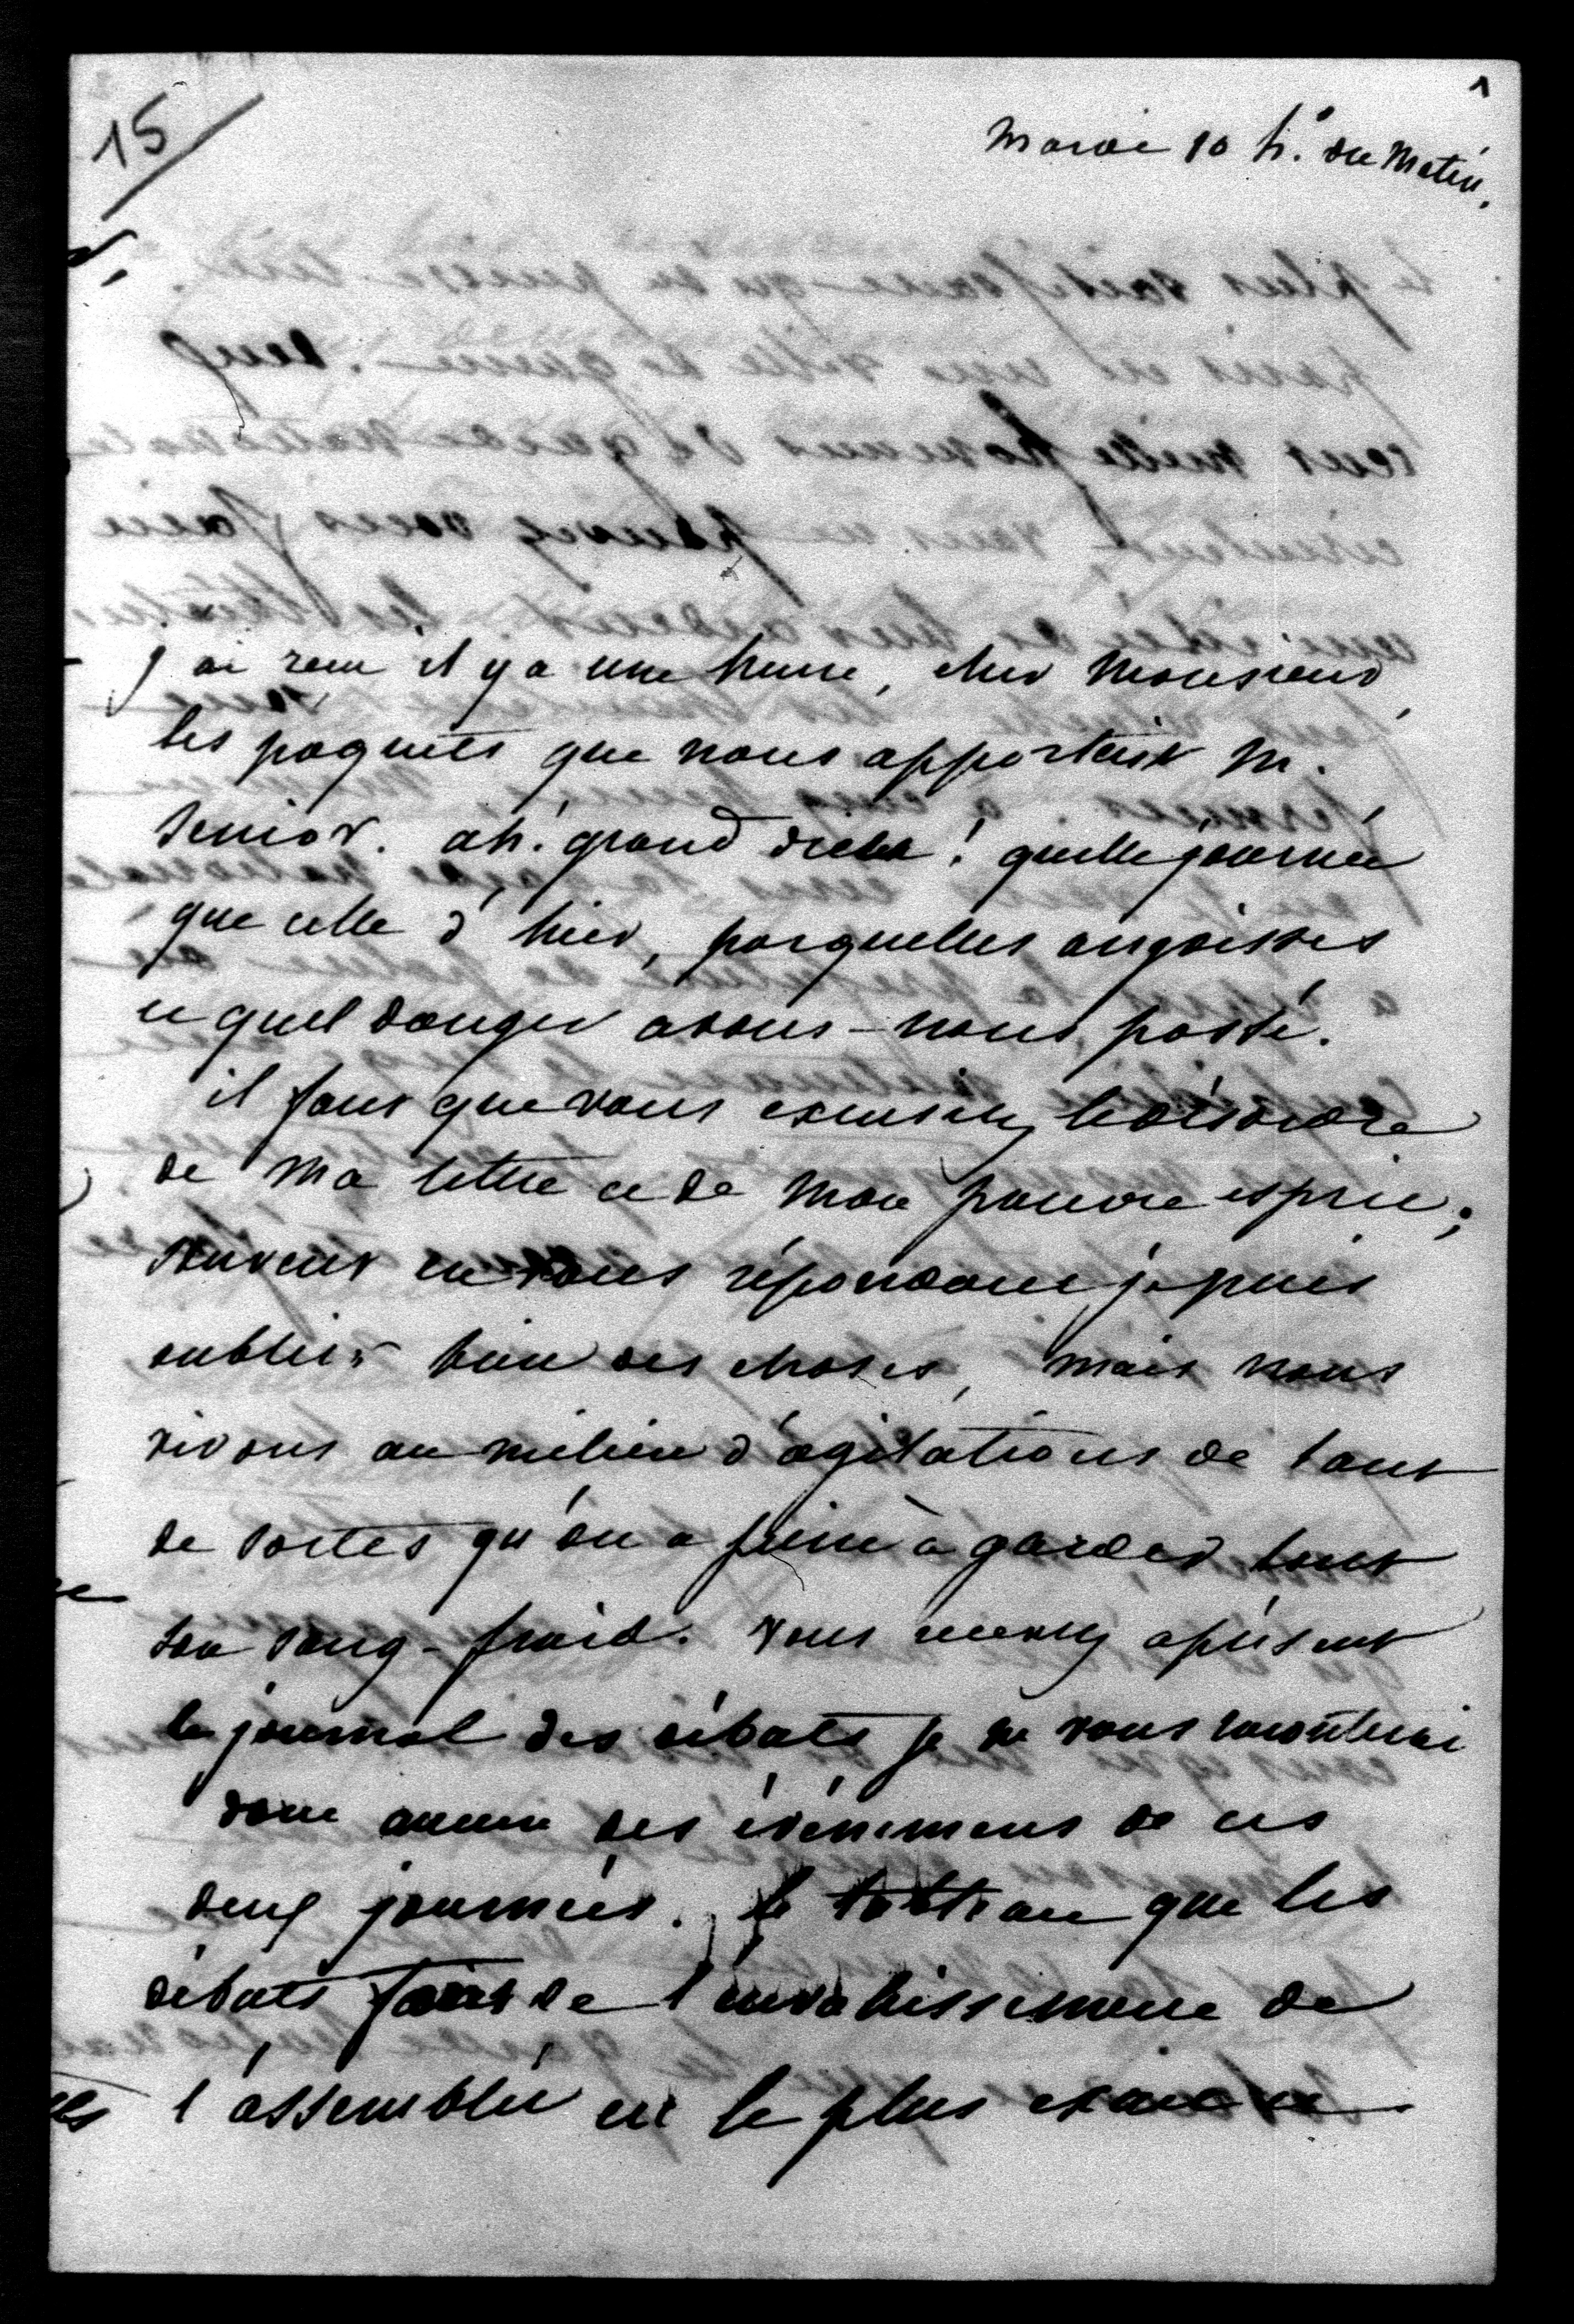 15
1
mardi 10 h. du matin.
j'ai reçu il y a une heure, cher Monsieur,
les paquets que nous apportait M.
Senior. ah! grand dieu! quelle journée
que celle d'hier, par quelles angoisses
et quel danger avons-nous passé.
il faut que vous excusiez le désordre
de ma lettre et de mon pauvre esprit;
souvent en vous répondant je puis
oublier bien des choses, mais nous
vivons au milieu d'agitations de tant
de sortes qu'on a peine à garder tout
son sang-froid. vous recevez à présent
le journal des débats je ne vous raconterai
donc aucun des événemens de ces
deux journées. le tableau que les
débats font de l'envahissement de
l'assemblée est le plus exact et